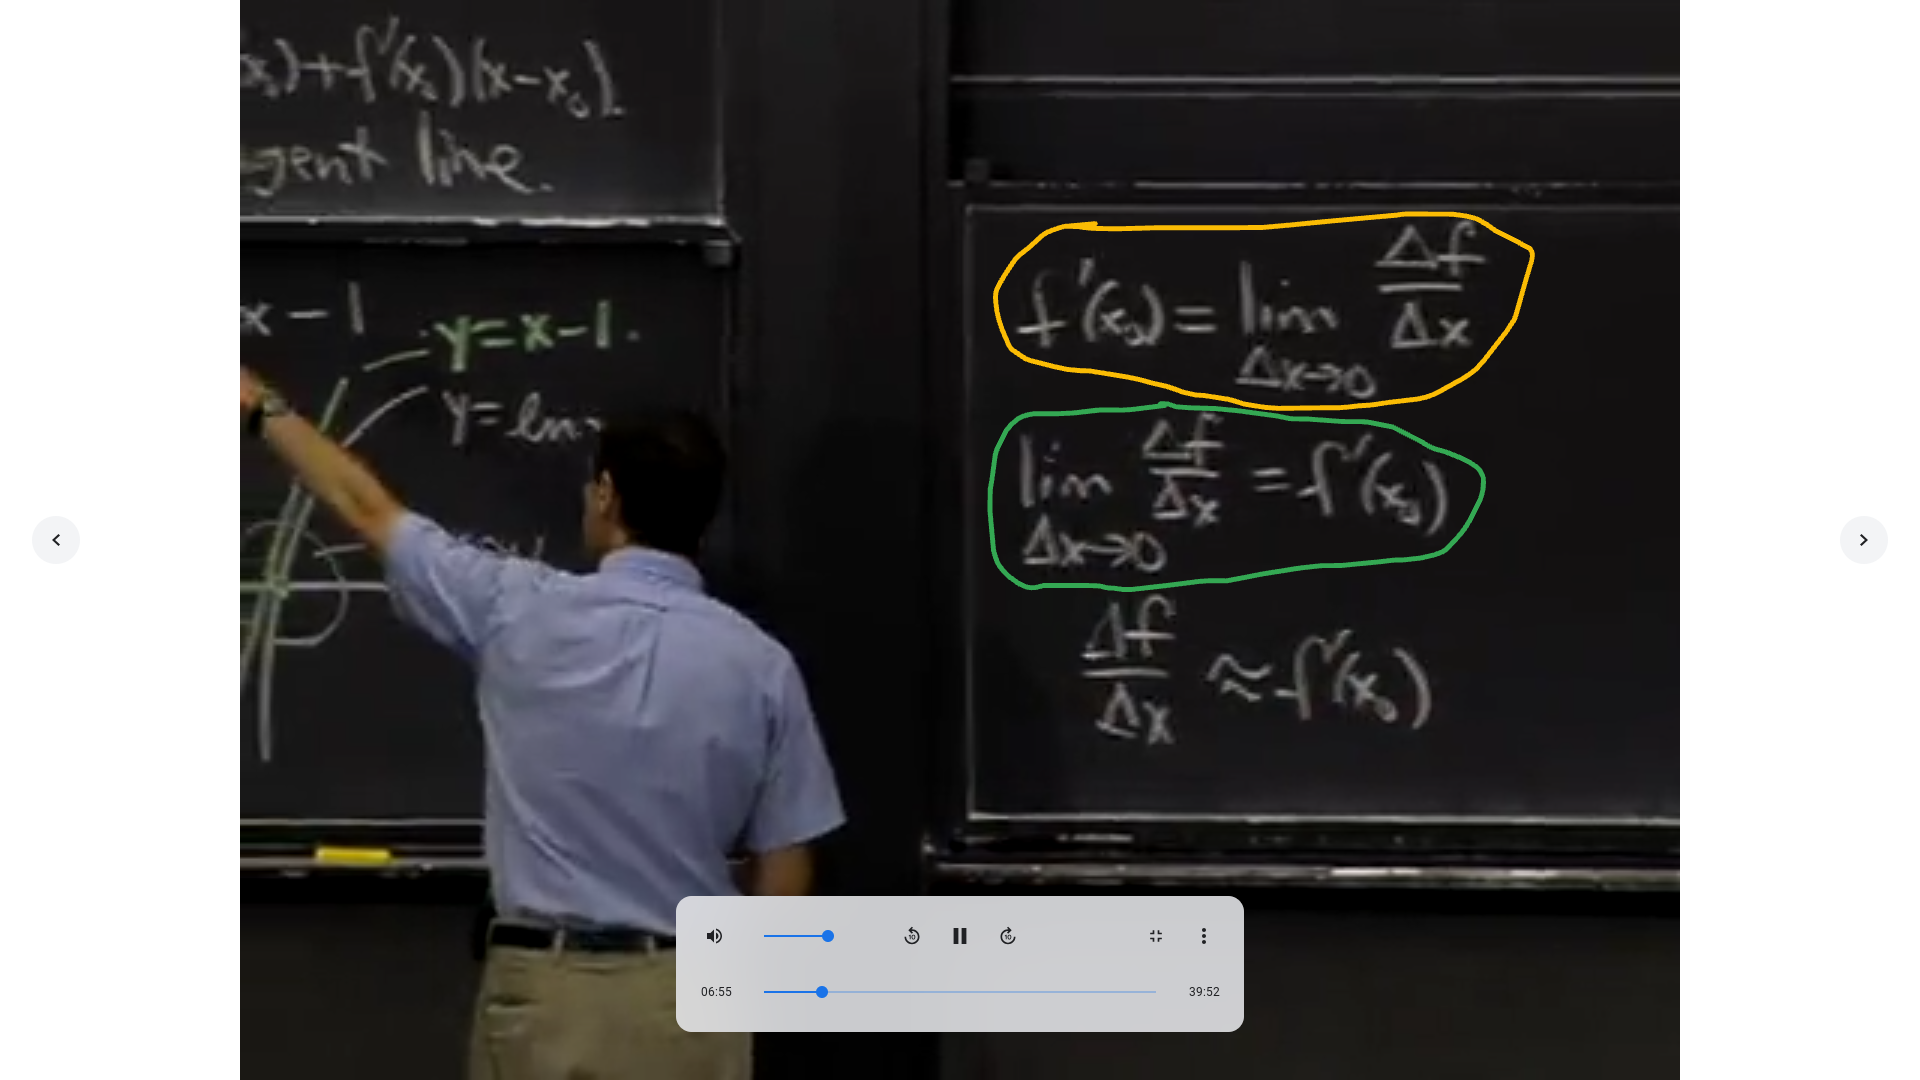 x₀) + f'(x₀)(x-x₀).
gent line.
x - 1
y = x-1.
y = ln
f'(x₀) = lim Δx→0 Δf/Δx
lim Δx→0 Δf/Δx = f'(x₀)
Δf/Δx ≈ f'(x₀)
10
10
06:55
39:52